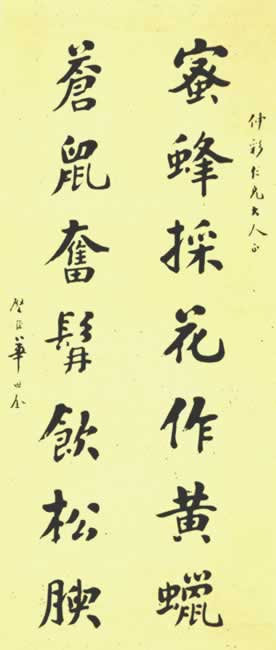 仲仁兄大人正
蜜蜂採花作黃蠟
蒼鼠奮髯飲松腴
華世奎